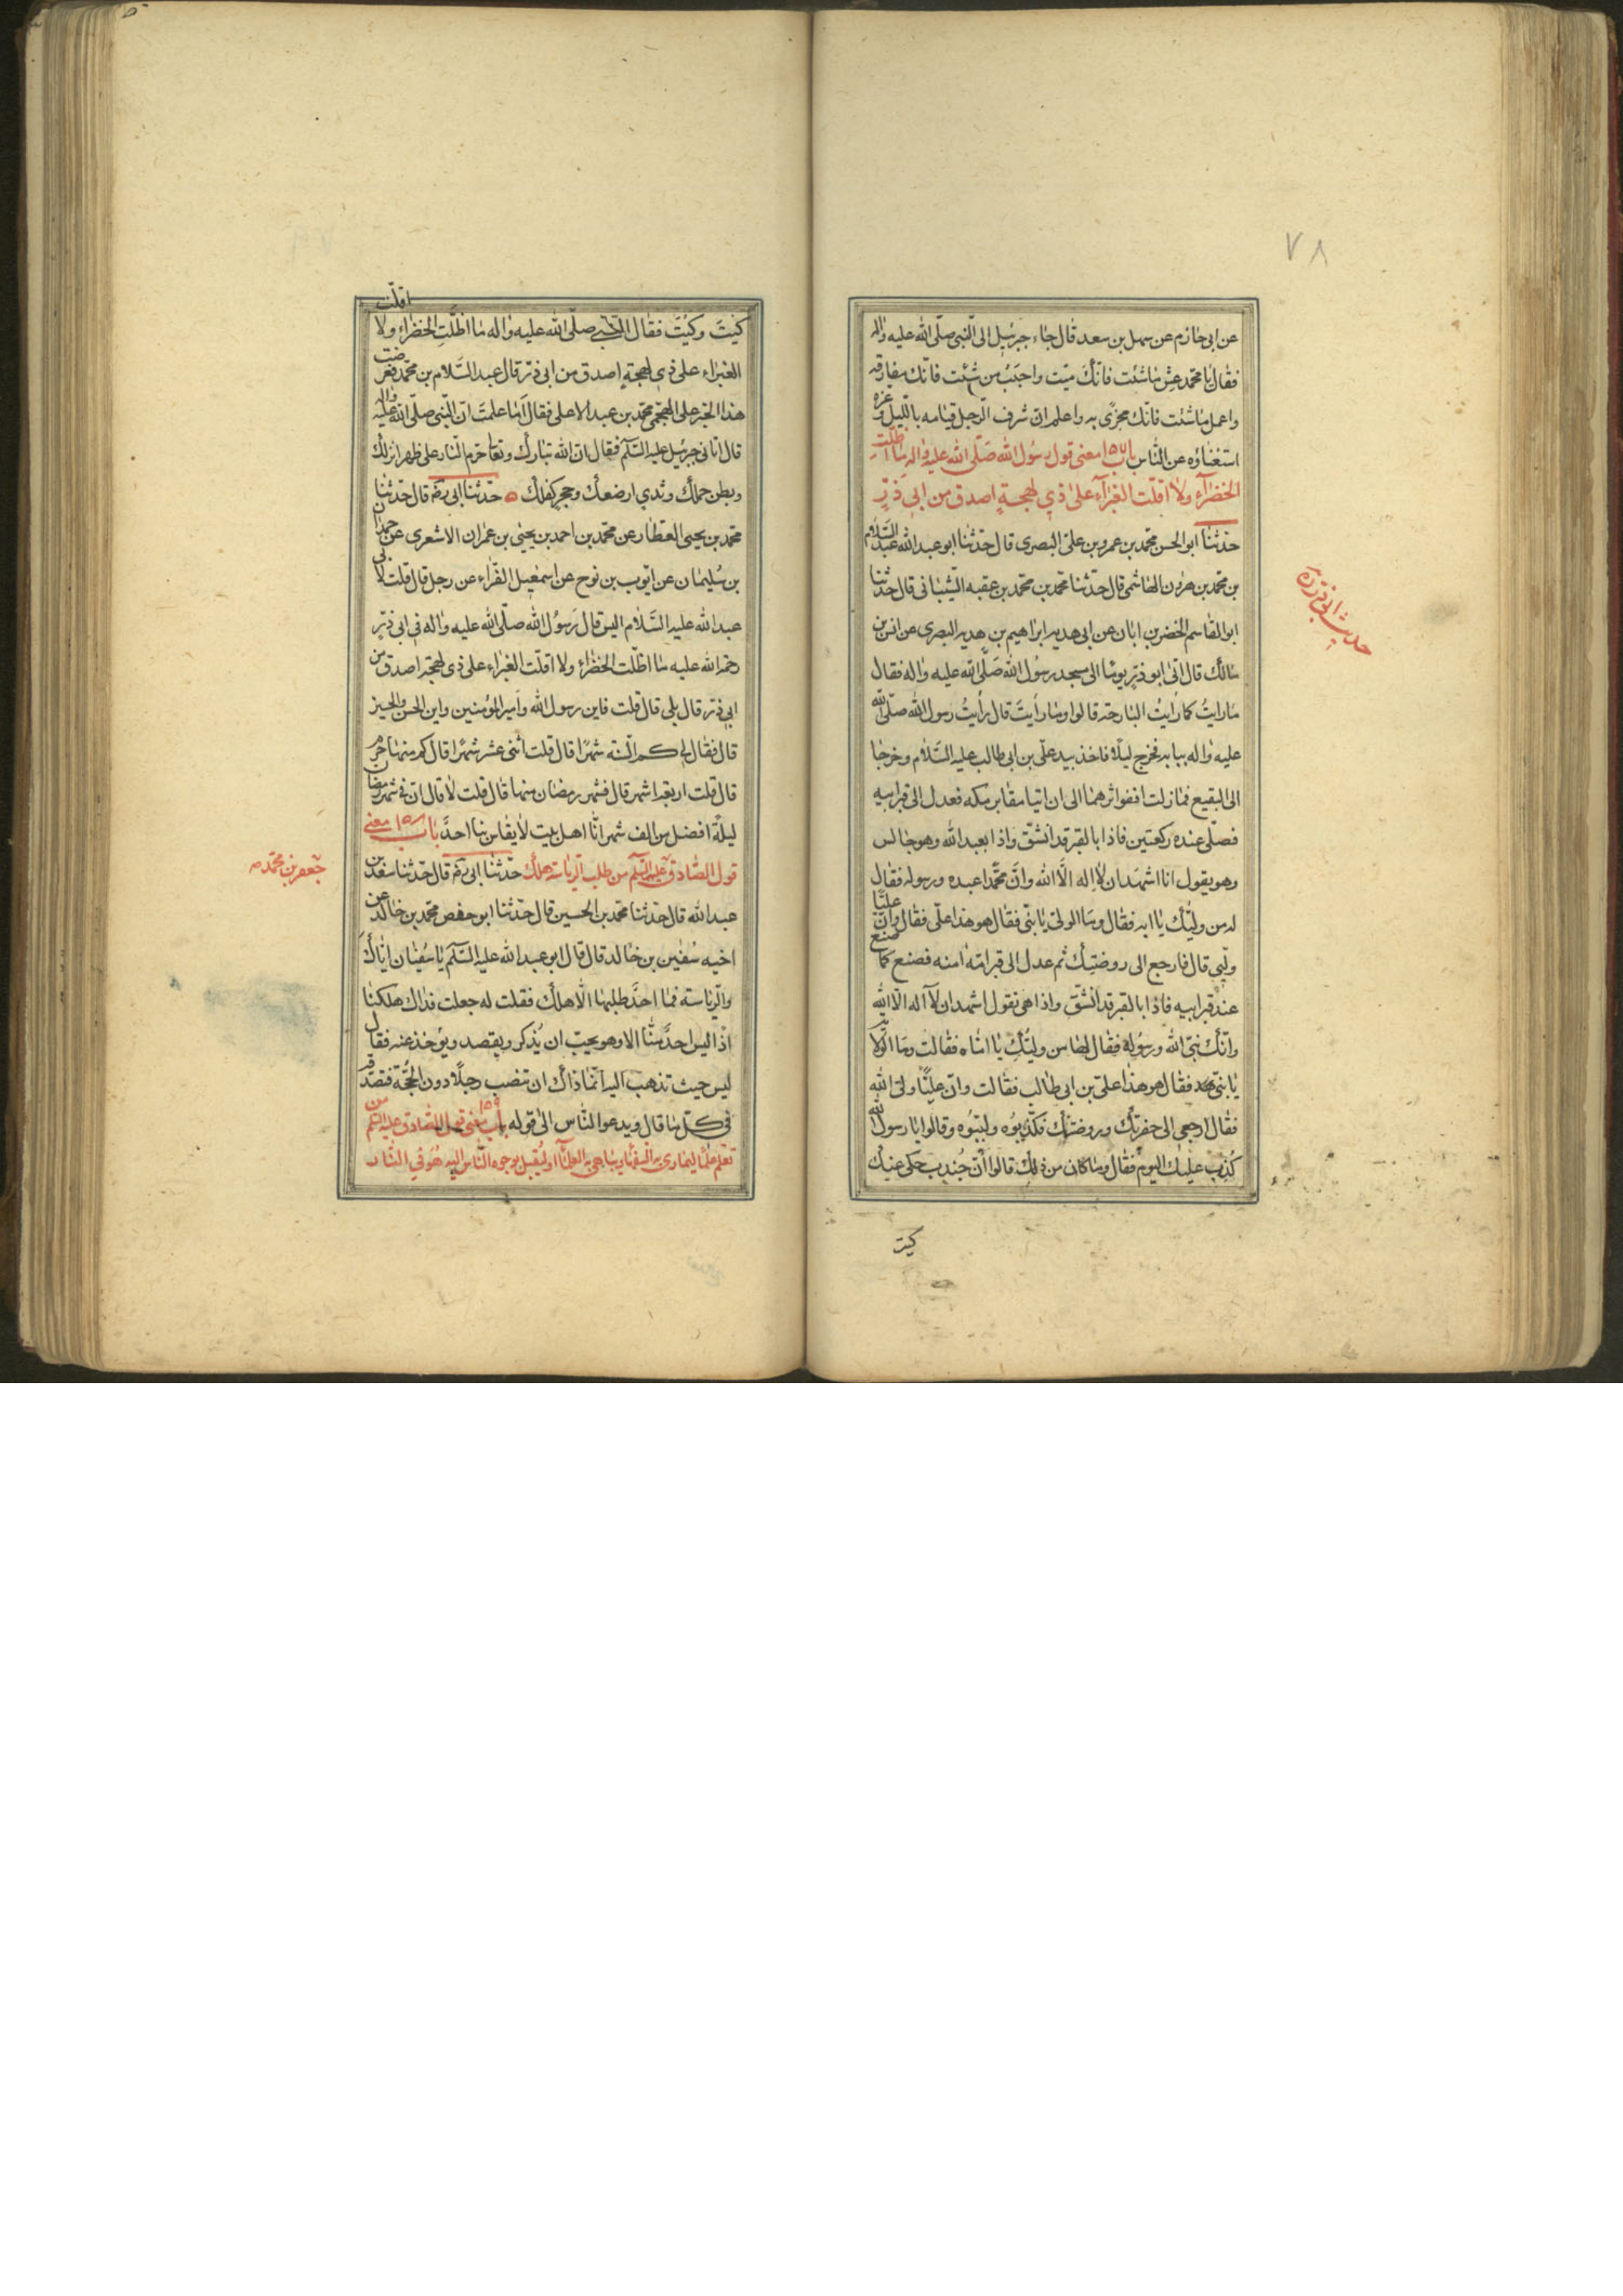 ٧٨
عن ابى حازم عن سهل بن سعد قال جاء جبرئيل الى النبى صلّى الله عليه واله
فقال يا محمد عش ما شئت فانّك ميّت واحبب من شئت فانّك مفارقه
واعمل ما شئت فانّك مجزىّ به واعلم انّ شرف الرّجل قيامه باللّيل وعزّه
استغناؤه عن النّاس باب ١٥٧ معنى قول رسول الله صلّى الله عليه واله ما اظلّت
الخضرآء ولا اقلّت الغبرآء على ذي لهجة اصدق من ابي ذرّ
حدّثنا ابو الحسن محمد بن عمرو بن علىّ البصرى قال حدّثنا ابو عبد الله عبد السّلام
بن محمد بن هرون الهاشمى قال حدّثنا محمد بن محمد بن عقبه الشّيبانى قال حدّثنا
ابو القاسم الخضر بن ابان عن ابى هدبه ابراهيم بن هدبه البصرى عن انس بن
مالك قال اتى ابو ذرّ يومًا الى مسجد رسول الله صلّى الله عليه واله فقال
ما رايتُ كما رايتُ البارحة قالوا وما رأيتَ قال رأيتُ رسول الله صلّى الله
عليه واله ببابه فخرج ليلًا فاخذ بيد علىّ بن ابى طالب عليه السّلام وخرجا
الى البقيع فما زلت اقفو اثرهما الى ان اتيا مقابر مكه فعدل الى قبر ابيه
فصلّى عنده ركعتين فاذا بالقبر قد انشقّ واذا بعبد الله وهو جالس
وهو يقول انا اشهد ان لا اله الّا الله وانّ محمّدا عبده ورسوله فقال
له من وليّك يا ابه فقال وما الولىّ يا بنىّ فقال هو هذا علىّ فقال وانّ عليّا
وليّى قال فارجع الى روضتك ثم عدل الى قبر امّه امنه فصنع كما صنع
عند قبر ابيه فاذا بالقبر قد انشقّ واذا هى تقول اشهد ان لا اله الّا الله
وانّك نبىّ الله ورسوله فقال لها من وليّك يا امّاه فقالت وما الولاية
يا بنىّ فقال هو هذا علىّ بن ابى طالب فقالت وانّ عليًّا ولىّ الله
فقال ارجعى الى حفرتك وروضتك فكذّبوه ولبّبوه وقالوا يا رسول الله
كُذِب عليك اليوم فقال وما كان من ذلك قالوا انّ جُندب حكى عنك
كيت
حديث ابى ذر ره
اقلّت
كيْتَ وكيْتَ فقال النّبي صلّى الله عليه واله ما اظلّت الخضراء ولا
الغبراء على ذي لهجة اصدق من ابى ذرّ قال عبد السّلام بن محمّد فعرضت
هذا الخبر على الهجمى محمّد بن عبد الاعلى فقال اما علمتَ انّ النّبى صلّى الله عليه واله
قال اتانى جبرئيل عليه السّلم فقال انّ الله تبارك وتعا حرّم النّار على ظهر انزلك
وبطن حملك وثدي ارضعك وحجر كفلك حدّثنا ابى ره قال حدّثنا
محمّد بن يحيى العطّار عن محمّد بن احمد بن يحيى بن عمران الاشعرى عن حمدان
بن سُليمان عن ايّوب بن نوح عن اسمعيل الفرّاء عن رجل قال قلت لابى
عبد الله عليه السّلام اليس قال رَسوُل الله صلّى الله عليه واله فى ابى ذرّ
رحمة الله عليه ما اظلّت الخضراء ولا اقلّت الغبراء على ذى لهجة اصدق من
ابى ذر قال بلى قال قلت فاين رسول الله وامير المؤمنين واين الحسن والحسين
قال فقال لى كم السّنه شهرًا قال قلت اثنى عشر شهرًا قال كم منها حرم
قال قلت اربعة اشهر قال فشهر رمضان منها قال قلت لا قال انّ فى شهر رمضان
ليلةً افضل من الف شهر انّا اهل بيت لا يقاس بنا احدٌ باب ١٥٨ معنى
قول الصّادق عليه السّلم من طلب الرّياسة هلك حدّثنا ابى ره قال حدّثنا سعد بن
عبد الله قال حدّثنا محمّد بن الحسين قال حدّثنا ابو حفص محمّد بن خالد عن
اخيه سُفين بن خالد قال قال ابو عبد الله عليه السّلم يا سُفيان ايّاك
والرّياسة فما احدٌ طلبها الّا هلك فقلت له جعلت فداك هلكنا
اذًا اليس احدٌ منّا الا وهو يحبّ ان يُذكر ويقصد ويؤخذ عنه فقال
ليس حيث تذهب اليه انّما ذاك ان تنصب رجلًا دون الحُجّة فتصدّقه
فى كلّ ما قال ويدعو النّاس الى قوله باب ١٥٩ معنى قول الصّادق عليه السّلم من
تعلّم علمًا ليمارى به السّفهآء ويباهى به العلمآء او ليُقبل بوجوه النّاس اليه هُو في النّار
جعفر بن محمّد